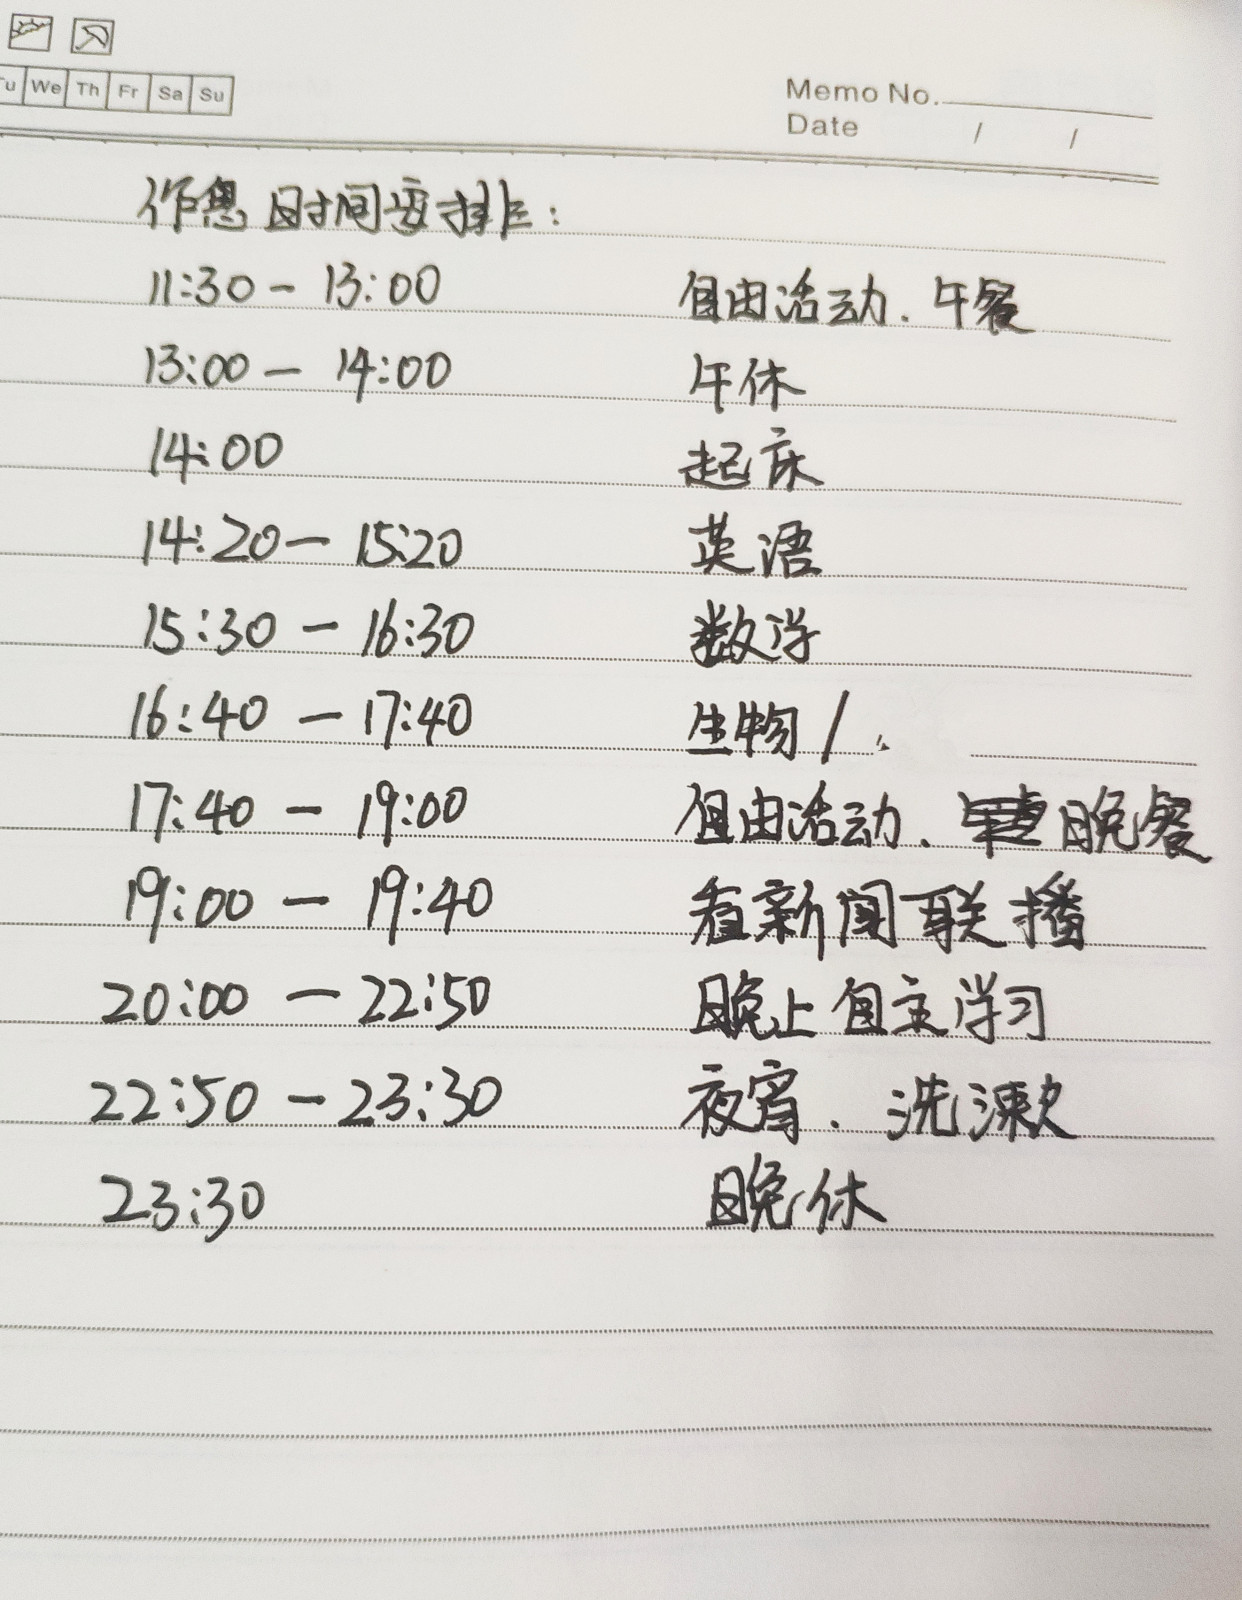 Tu We Th Fr Sa Su
Memo No.
Date / /
作息时间安排：
11:30 - 13:00 自由活动、午餐
13:00 - 14:00 午休
14:00 起床
14:20 - 15:20 英语
15:30 - 16:30 数学
16:40 - 17:40 生物/
17:40 - 19:00 自由活动、晚餐
19:00 - 19:40 看新闻联播
20:00 - 22:50 晚上自主学习
22:50 - 23:30 夜宵、洗漱
23:30 晚休